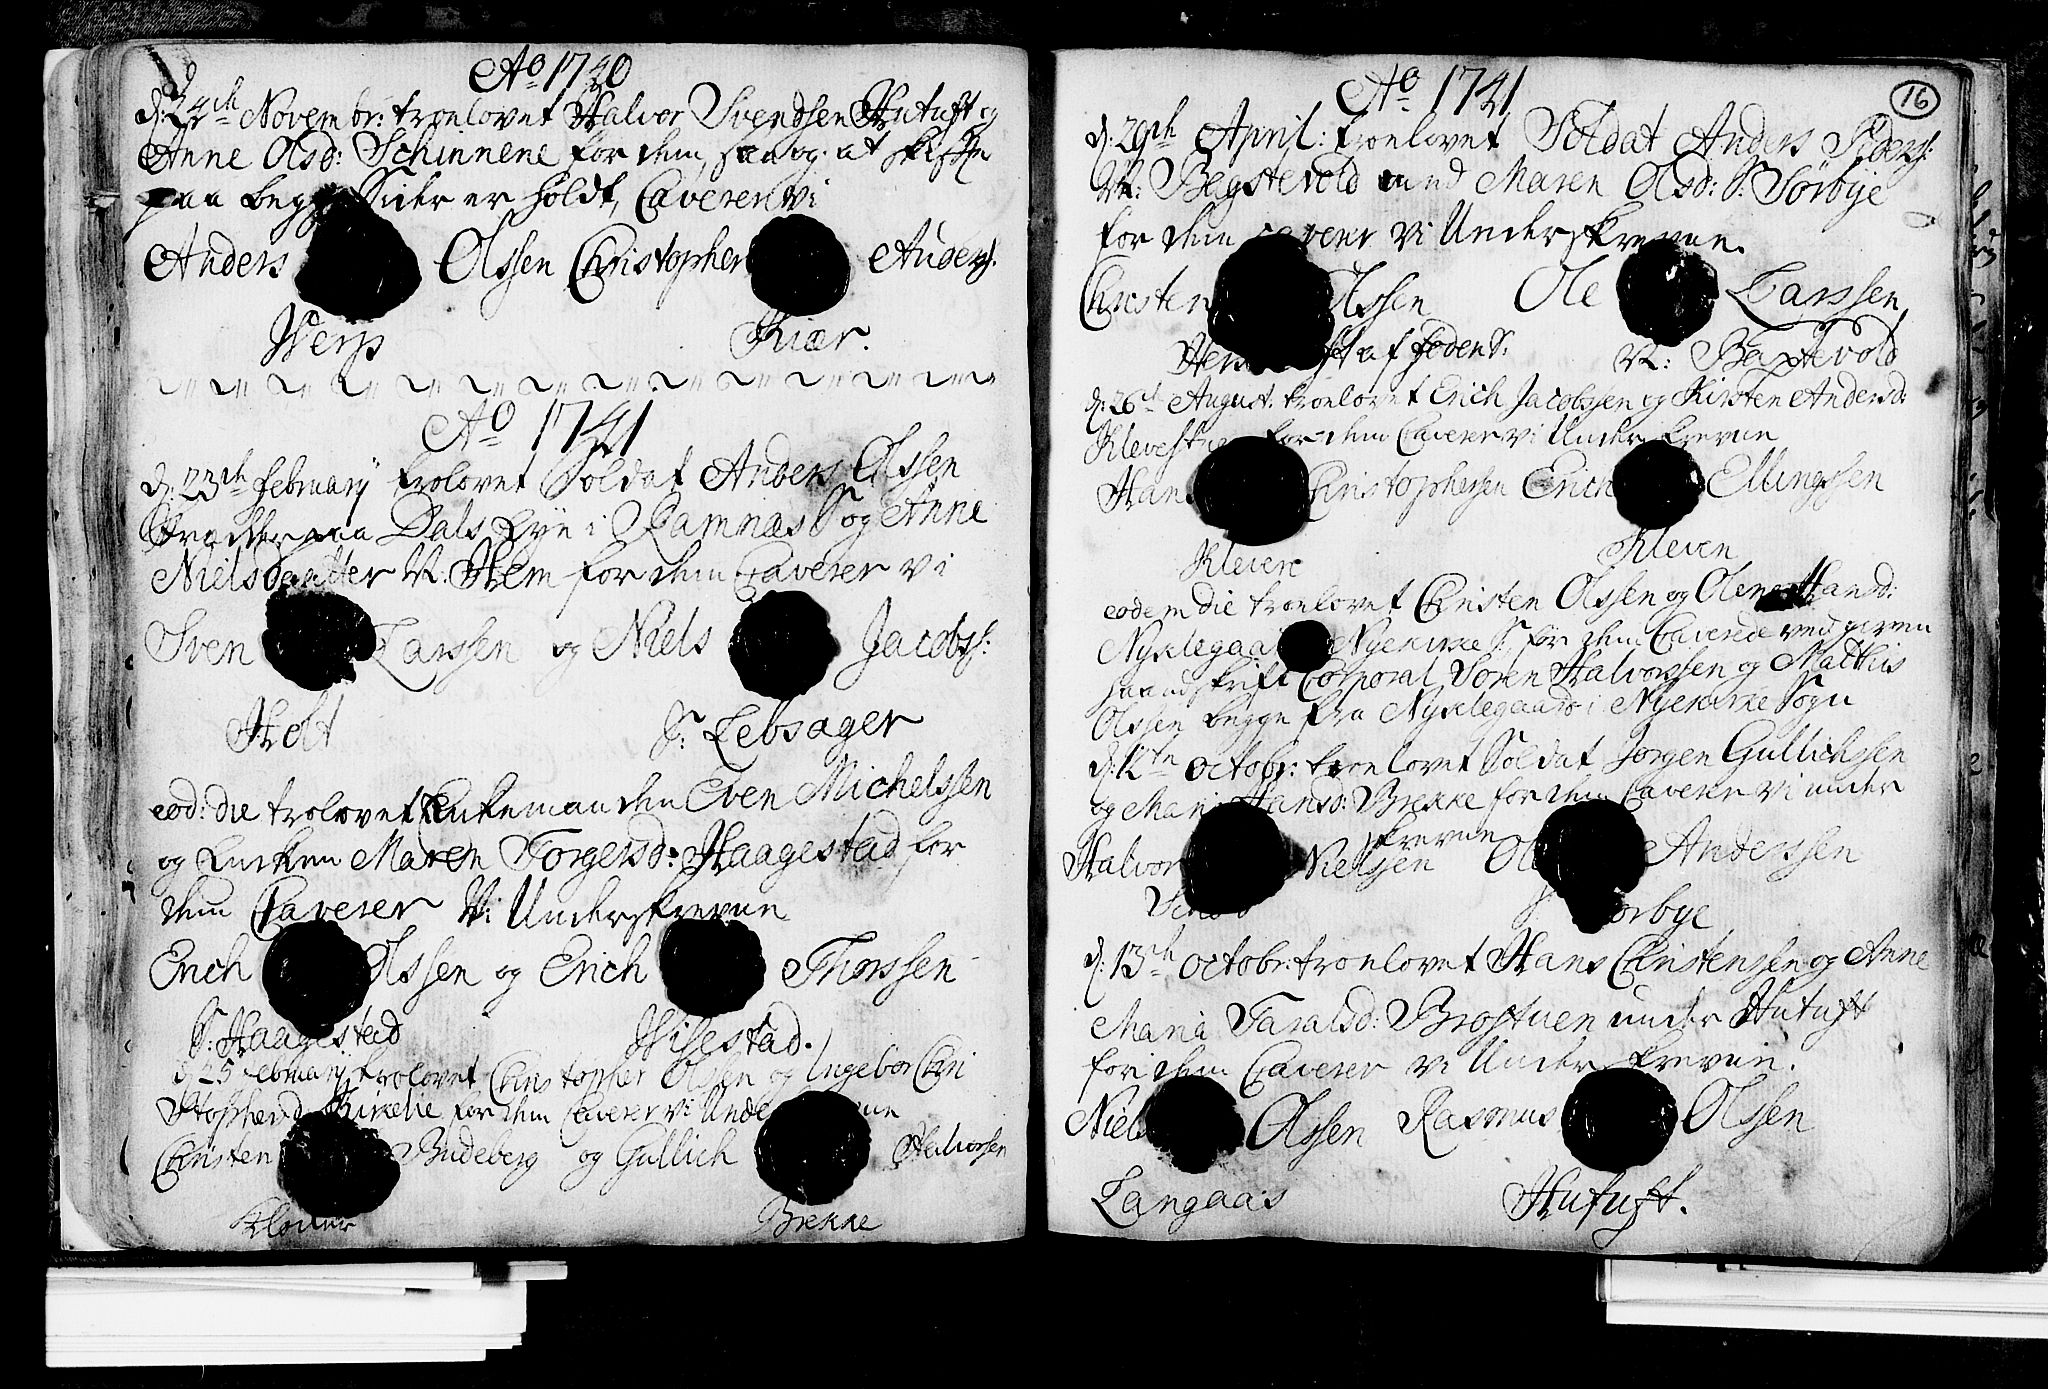 Ao 1740
d: 24th Novembr: troelovet Halvor Svendsen Hutuft og
Anne Olsd: Schinnene for dem, saa og at skifte
paa begge Sider er holdt, Caverer vi
Anders Olssen Christopher Anders:
Werp Kiær.
Ao 1741
d: 23th February trolovet Soldat Anders Olssen
paa Dals Eye i Ramnæs S og Anne
Nielsdaatter N: Hem for dem Caverer vi
Sven Larssen og Niels Jacobs:
Holt S: Lebsager
eod: die trolovet Enkemanden Even Michelssen
og Enken Maren Torgersd: Haagestad for
dem Caverer Vi Underskrevne
Erich Olssen og Erich Thorssen
S: Haagestad Wisestad.
d 25 February trolovet Christopher Olssen og Ingebor Chri
stophersd Birkelie for dem Caverer vi Unde vne
Christen Budeberg og Gullich Halvorssen
Brekke
16
Ao 1741
d: 29th April: troelovet Soldat Anders
N: Begstevold med Maren Olsd: S: Sörbye
for dem caverer vi Underskrevne.
Christen Olssen Ole Larssen
af Jedens: N: Bextevold
d: 26th August: troelovet Erich Jacobssen og Kirsten Andersd:
for dem Caverer vi Underskrevne
Hans Christophersen Erich Ellingssen
Klevene Kleven
eodem die troelovet Christen Olssen og Olene Hansd:
Nyklegaa Nyekirke S: for dem Caverede ved given
haandskrift Corporal Sören Halvorssen og Matthis
Olssen begge fra Nyklegaard i Nyekirke Sogn
d: 12te octobr: troelovet Soldat Jorgen Gullichssen
og Mari Hansd: Brekke for dem Caverer vi under
skrevne
Halvor Nielssen Ole Anderssen
S orbye
d: 13th octobr: troelovet Hans Christensen og Anne
Maria Taralsd: Brostuen under Hutuft
for dem Caverer vi Underskrevne.
Niels Olssen Rasmus Olssen
Langaas Hutuft.